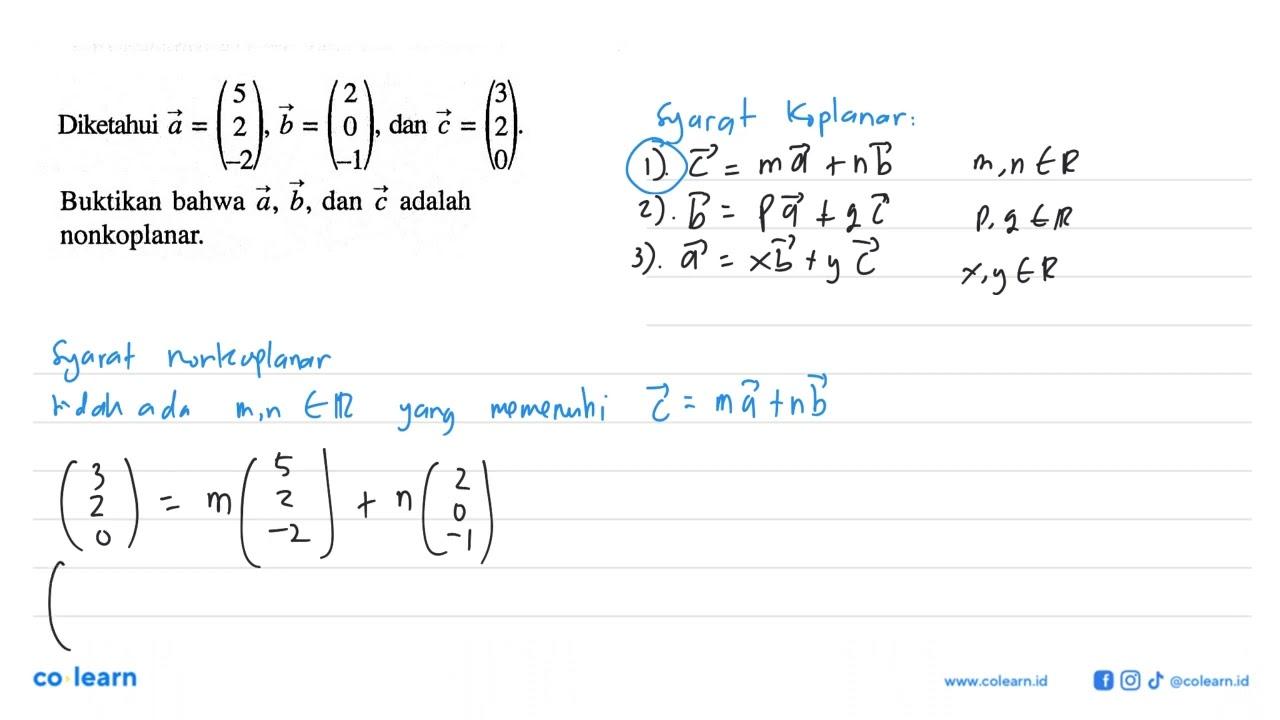 Diketahui $\vec{a} = \begin{pmatrix} 5 \\ 2 \\ -2 \end{pmatrix}, \vec{b} = \begin{pmatrix} 2 \\ 0 \\ -1 \end{pmatrix}$, dan $\vec{c} = \begin{pmatrix} 3 \\ 2 \\ 0 \end{pmatrix}$.
Buktikan bahwa $\vec{a}$, $\vec{b}$, dan $\vec{c}$ adalah
nonkoplanar.
Syarat Koplanar:
1). $\vec{c} = m\vec{a} + n\vec{b}$ m, n ∈ R
2). $\vec{b} = p\vec{a} + q\vec{c}$ p, q ∈ R
3). $\vec{a} = x\vec{b} + y\vec{c}$ x, y ∈ R
Syarat nonkoplanar
tidak ada m, n ∈ R yang memenuhi $\vec{c} = m\vec{a} + n\vec{b}$
$\begin{pmatrix} 3 \\ 2 \\ 0 \end{pmatrix} = m \begin{pmatrix} 5 \\ 2 \\ -2 \end{pmatrix} + n \begin{pmatrix} 2 \\ 0 \\ -1 \end{pmatrix}$
(
co learn
www.colearn.id @colearn.id